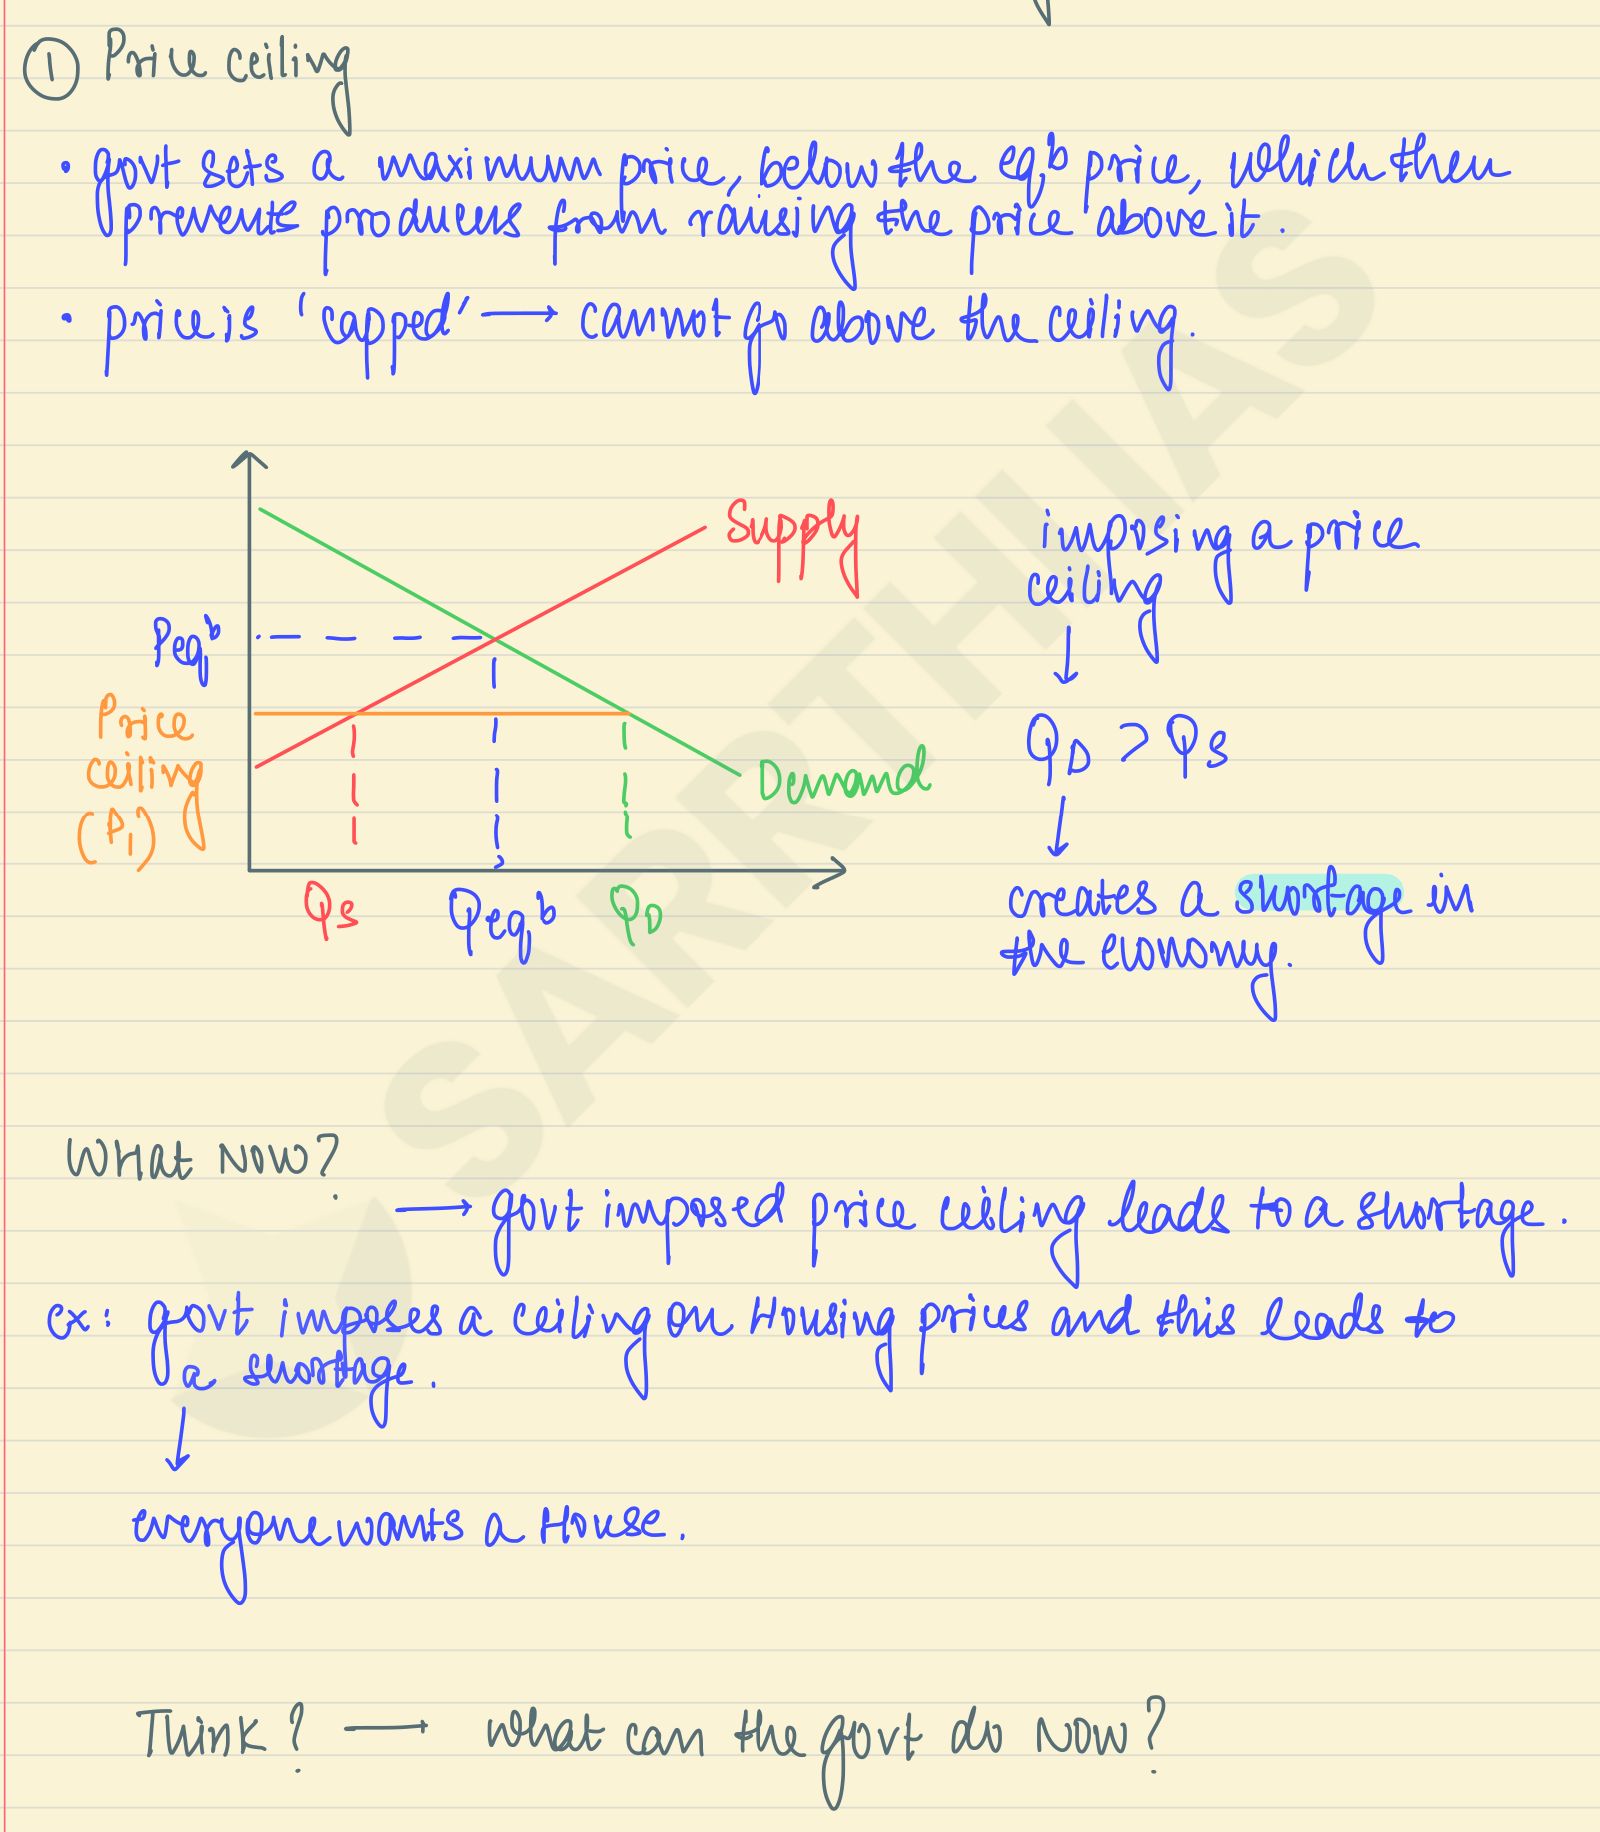 ① Price ceiling
• govt sets a maximum price, below the eqb price, which then
prevents producers from raising the price above it.
• price is 'capped' → cannot go above the ceiling.
Supply
imposing a price
ceiling
↓
Peqb
Price
ceiling
(P1)
QD > QS
↓
Demand
QS Qeqb QD
creates a shortage in
the economy.
What now?
→ govt imposed price ceiling leads to a shortage.
ex: govt imposes a ceiling on Housing prices and this leads to
a shortage.
↓
everyone wants a House.
Think? → what can the govt do now?
SARRTHI IAS